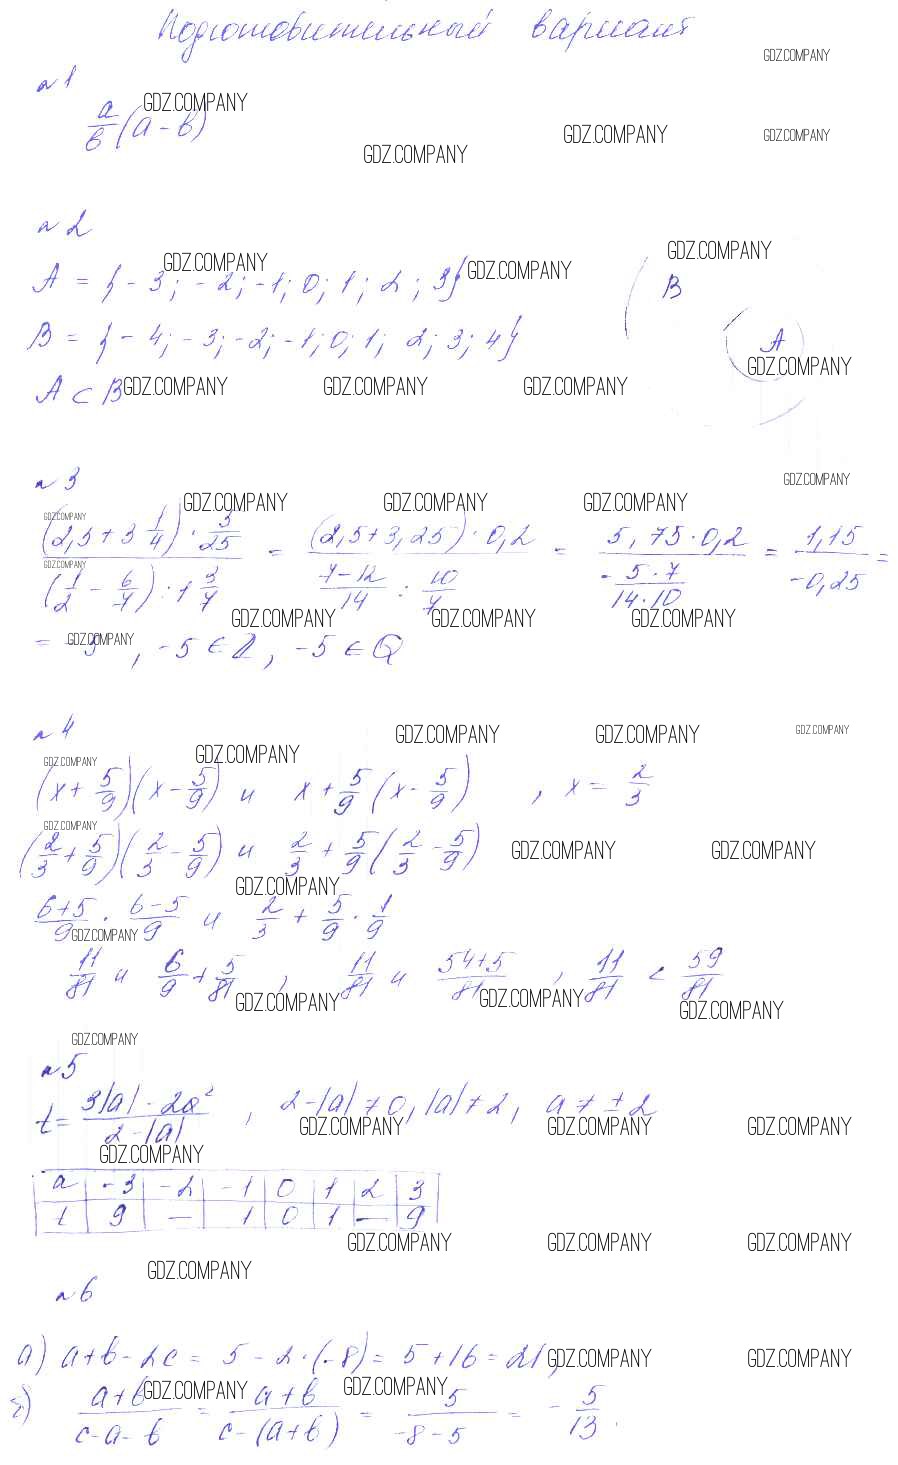 Подготовительный вариант
GDZ.COMPANY
№1
GDZ.COMPANY
a/b (a - b)
GDZ.COMPANY GDZ.COMPANY
GDZ.COMPANY
№2
GDZ.COMPANY
A = {-3; -2; -1; 0; 1; 2; 3}
GDZ.COMPANY GDZ.COMPANY
B
B = {-4; -3; -2; -1; 0; 1; 2; 3; 4}
A
GDZ.COMPANY
A ⊂ B
GDZ.COMPANY GDZ.COMPANY GDZ.COMPANY
№3
GDZ.COMPANY
GDZ.COMPANY GDZ.COMPANY GDZ.COMPANY
GDZ.COMPANY
((2,5 + 3 1/4) · 5/25) / ((1/2 - 6/7) : 1 3/7) = ((2,5 + 3,25) · 0,2) / ((7-12)/14 : 10/7) = (5,75 · 0,2) / (-(5·7)/(14·10)) = 1,15 / -0,25 =
GDZ.COMPANY
GDZ.COMPANY GDZ.COMPANY GDZ.COMPANY
= -5, -5 ∈ Z, -5 ∈ Q
GDZ.COMPANY
№4
GDZ.COMPANY GDZ.COMPANY GDZ.COMPANY
GDZ.COMPANY GDZ.COMPANY
(x + 5/9)(x - 5/9) и x + 5/9 (x - 5/9), x = 2/3
GDZ.COMPANY
(2/3 + 5/9)(2/3 - 5/9) и 2/3 + 5/9 (2/3 - 5/9)
GDZ.COMPANY GDZ.COMPANY
GDZ.COMPANY
(6+5)/9 · (6-5)/9 и 2/3 + 5/9 · 1/9
GDZ.COMPANY
11/81 и 6/9 + 5/81, 11/81 и (54+5)/81, 11/81 < 59/81
GDZ.COMPANY GDZ.COMPANY GDZ.COMPANY
GDZ.COMPANY
№5
t = (3|a| - 2a²) / (2 - |a|), 2 - |a| ≠ 0, |a| ≠ 2, a ≠ ±2
GDZ.COMPANY GDZ.COMPANY GDZ.COMPANY
GDZ.COMPANY
a -3 -2 -1 0 1 2 3
t 9 — 1 0 1 — 9
GDZ.COMPANY GDZ.COMPANY GDZ.COMPANY
GDZ.COMPANY
№6
а) a + b - 2c = 5 - 2 · (-8) = 5 + 16 = 21,
GDZ.COMPANY GDZ.COMPANY
GDZ.COMPANY GDZ.COMPANY
б) (a + b) / (c - a - b) = (a + b) / (c - (a + b)) = 5 / (-8 - 5) = - 5/13.